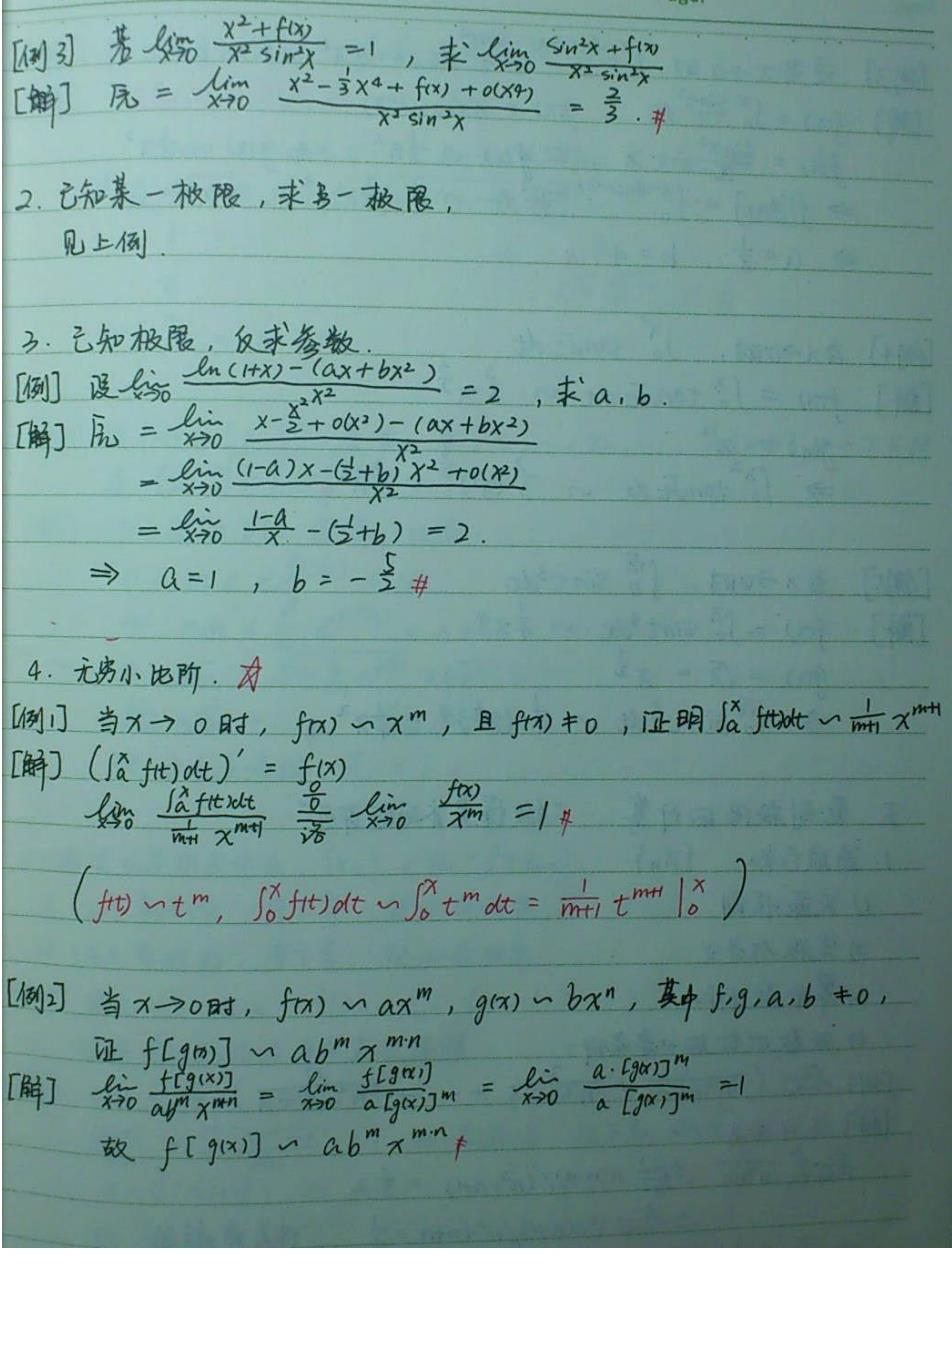 [例3] 若 lim x→0 (x²+f(x))/(x² sin²x) = 1 , 求 lim x→0 (sin²x+f(x))/(x² sin²x)
[解] 原 = lim x→0 (x² - 1/3 x⁴ + f(x) + o(x⁴))/(x² sin²x) = 2/3 . #
2. 已知某一极限, 求另一极限,
见上例.
3. 已知极限, 反求参数.
[例] 设 lim x→0 (ln(1+x) - (ax+bx²))/x² = 2 , 求 a, b.
[解] 原 = lim x→0 (x - x²/2 + o(x²) - (ax+bx²))/x²
= lim x→0 ((1-a)x - (1/2+b)x² + o(x²))/x²
= lim x→0 (1-a)/x - (1/2+b) = 2.
⇒ a=1 , b = - 5/2 #
4. 无穷小比阶. ☆
[例1] 当 x→0 时, f(x) ∽ xᵐ, 且 f(x) ≠ 0, 证明 ∫ₐˣ f(t)dt ∽ 1/(m+1) xᵐ⁺¹
[解] (∫ₐˣ f(t)dt)′ = f(x)
lim x→0 (∫ₐˣ f(t)dt)/(1/(m+1) xᵐ⁺¹) 0/0 洛 lim x→0 f(x)/xᵐ = 1 #
( f(t) ∽ tᵐ, ∫₀ˣ f(t)dt ∽ ∫₀ˣ tᵐ dt = 1/(m+1) tᵐ⁺¹ |₀ˣ )
[例2] 当 x→0时, f(x) ∽ axᵐ, g(x) ∽ bxⁿ, 其中 f, g, a, b ≠ 0,
证 f[g(x)] ∽ abᵐ xᵐ·ⁿ
[解] lim x→0 f[g(x)]/(abᵐ xᵐ⁺ⁿ) = lim x→0 f[g(x)]/(a[g(x)]ᵐ) = lim x→0 (a·[g(x)]ᵐ)/(a[g(x)]ᵐ) = 1
故 f[g(x)] ∽ abᵐ xᵐ·ⁿ #